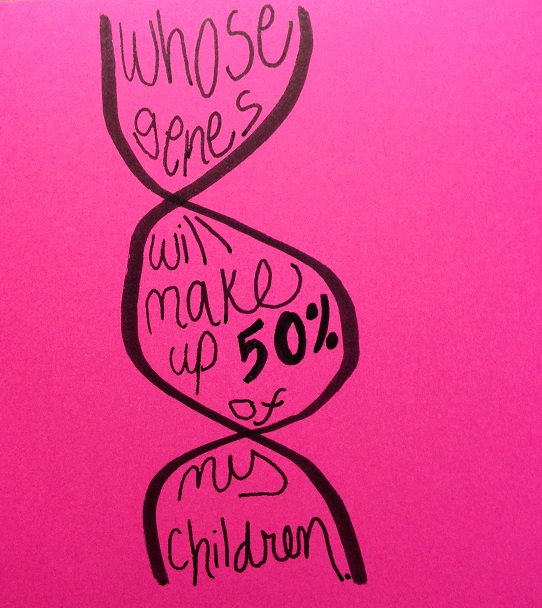 whose
genes
will
make
up 50%
of
my
children.